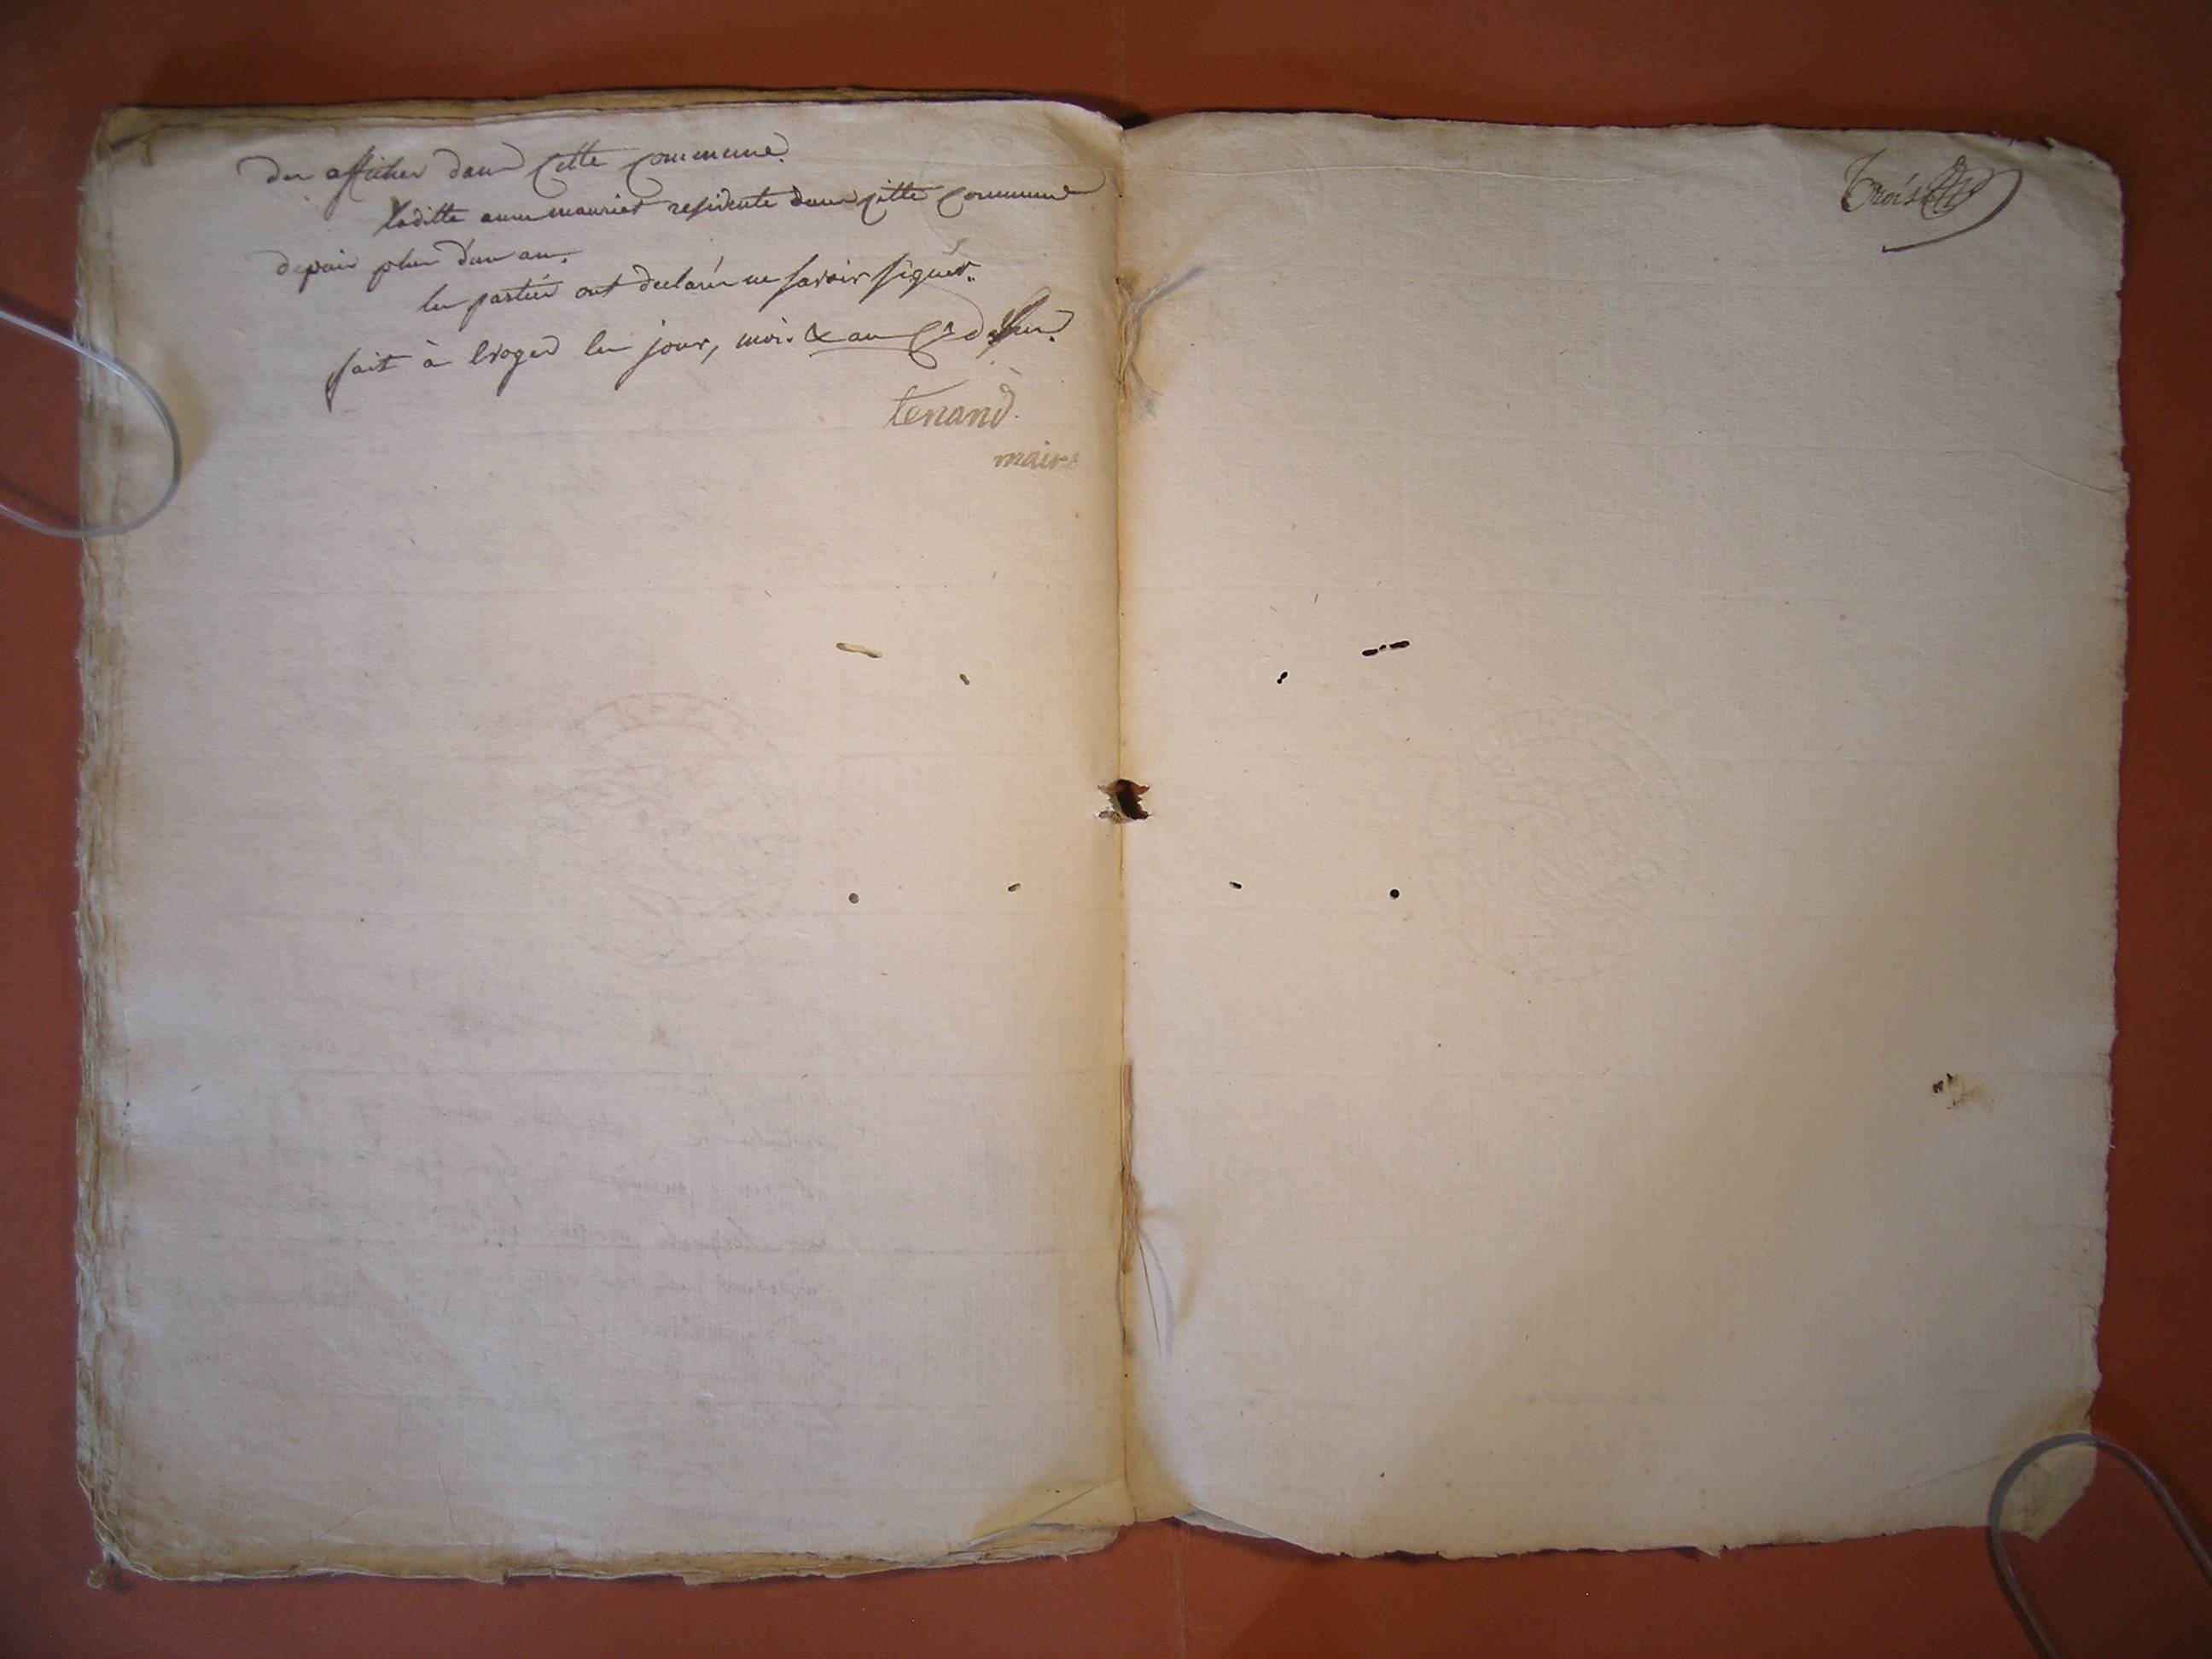 des affiches dans cette commune.
laditte anne maurier residente dans cette commune
depuis plus d'un an.
les parties ont declarées ne savoir signer.
fait à les jour, mois & an
tenand
maire
trois